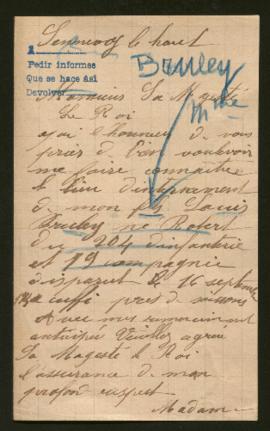 le haut
1
Pedir informes
Que se hace Así
Devolver
Bruley
Monsieur Sa Majesté
Le Roi
Mme
j'ai l'honneur de vous
prier de bien vouloir
me faire connaître
le lieu d'internement
de mon fils Louis
Bruley né Robert
du 204 d'infanterie
et 19 compagnie
disparut le 16 septembre
a cuffi pres de
Avec mes
antécipée Veuillez agrée
Sa Magesté le Roi
l'assurance de mon
profond respect
Madame